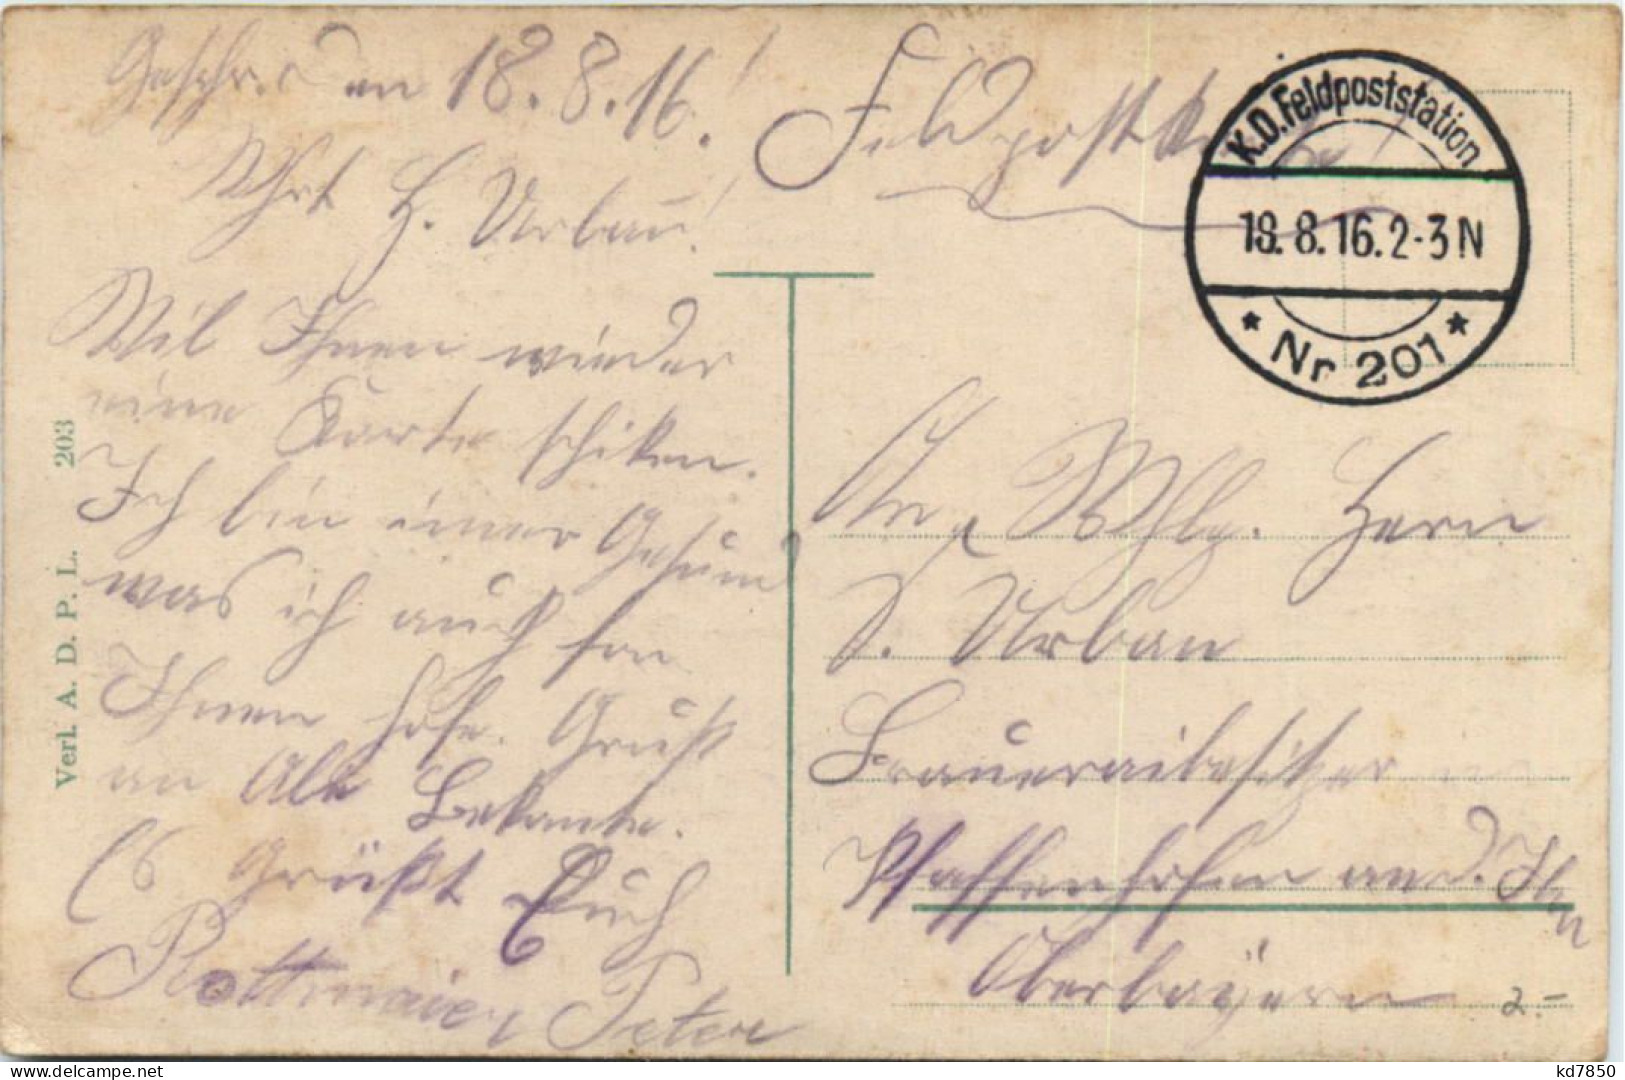 Geschr. am 18.8.16!
Wrt H. Urban!
Wil Ihnen wieder
eine Karte schiken.
Ich bin imer Gesund
was ich auch fon
Ihnen hofe. Gruß
an Alle Bekante.
Es Grüßt Euch
Rottmaier Peter
Verl. A. D. P. L. 203
Feldpostkarte!
K.D. Feldpoststation
18.8.16.2-3N
* Nr 201 *
An Whlg. Herrn
Urban
Brauereibesitzer
Pfaffenhofen an d. Ilm
Oberbayern
2.-
kd7850